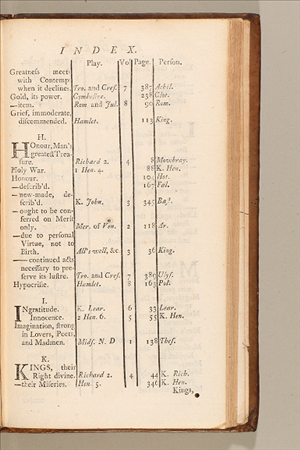 INDEX.
Play. Vol Page. Person.
Greatness meet-
with Contempt
when it declines. Tro. and Cres. 7 387 Achil.
Gold, its power. Cymbeline. 238 Clot.
—item. Rom and Jul. 8 90 Rom.
Grief, immoderate,
discommended. Hamlet. 113 King.
H.
HOnour, Man's
greatest Trea-
sure. Richard 2. 4 8 Mowbray.
Holy War. 1 Hen. 4. 88 K. Hen.
Honour. Hot.
—describ'd. 167 Fal.
— new-made, de-
scrib'd. K. John, 3 345 Bast.
— ought to be con-
ferred on Merit
only. Mer. of Ven. 2 118 Ar.
—due to personal
Virtue, not to
Birth. All's well, &c. 3 36 King.
—— continued acts
necessary to pre-
serve its lustre. Tro. and Cres. 7 380 Ulys.
Hypocrisie. Hamlet. 8 163 Pol.
I.
INgratitude. K. Lear. 6 33 Lear.
Innocence. 2 Hen. 6. 5 55 K. Hen.
Imagination, strong
in Lovers, Poets,
and Madmen. Mids. N. D 1 138 Thes.
K.
KINGS, their
Right divine. Richard 2. 4 44 K. Rich.
—their Miseries. Hen. 5. 346 K. Hen.
Kings,